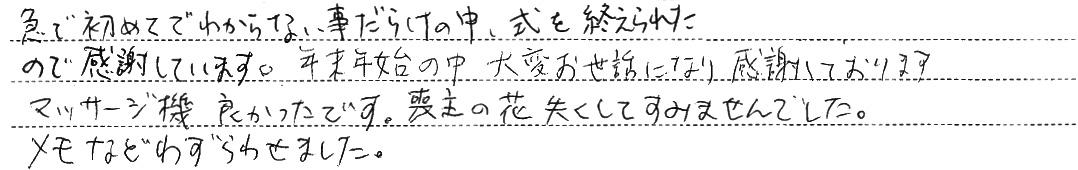 急で初めてでわからない事だらけの中、式を終えられた
ので感謝しています。年末年始の中 大変お世話になり 感謝しております
マッサージ機 良かったです。喪主の花 失くしてすみませんでした。
メモなどわずらわせました。